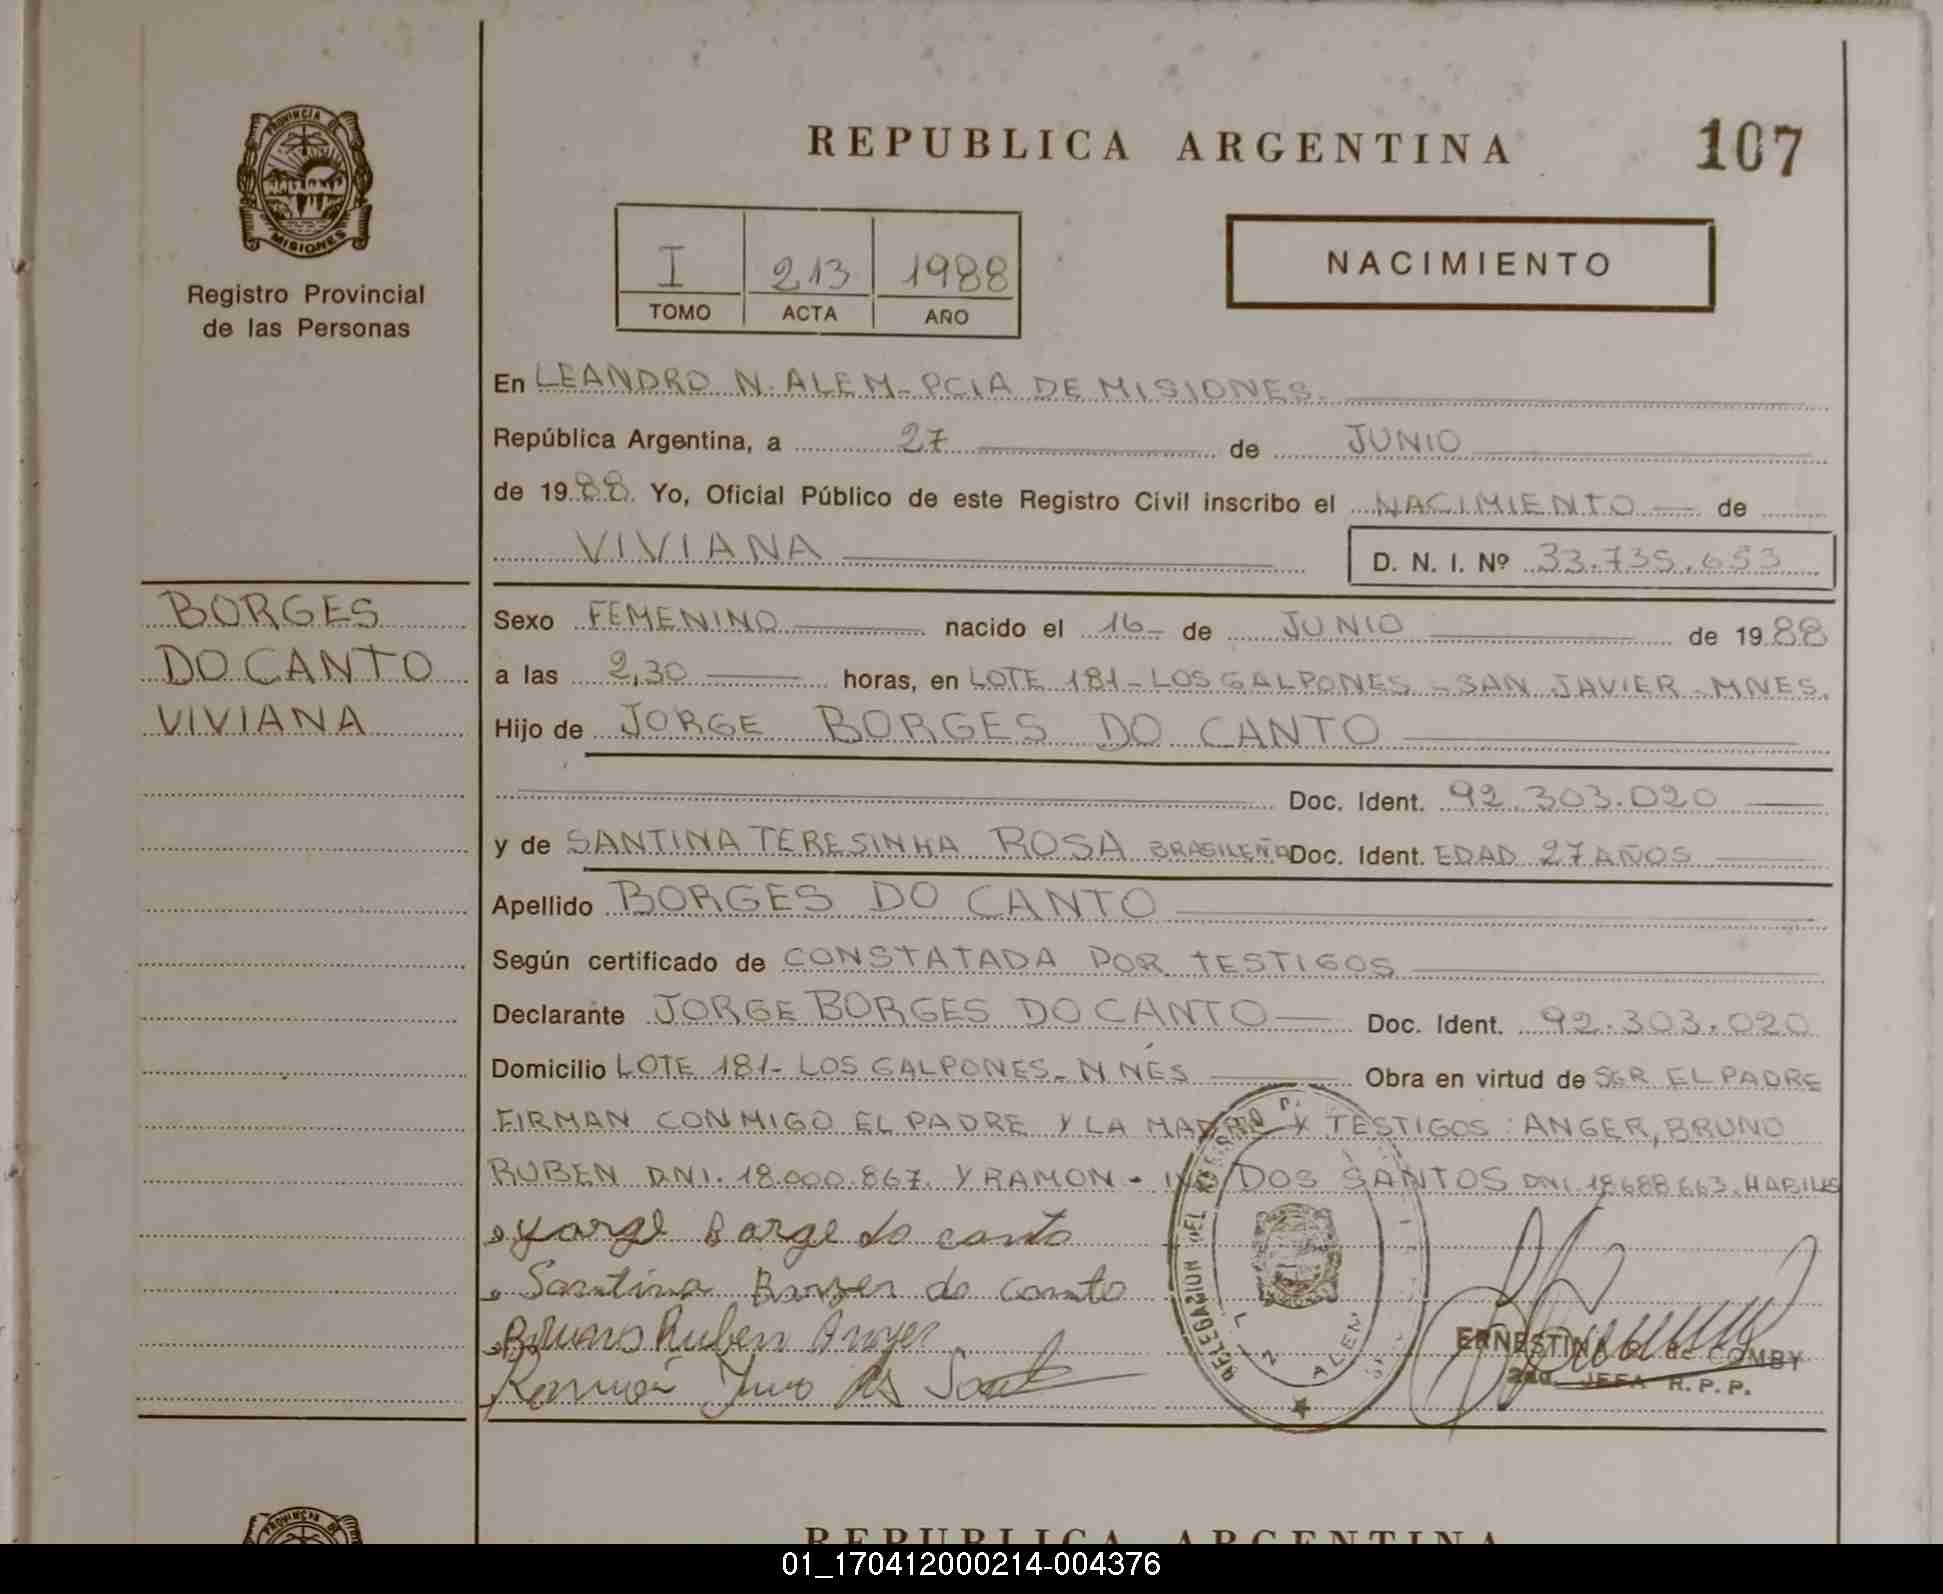 REPUBLICA ARGENTINA
107
PROVINCIA DE
MISIONES
Registro Provincial
de las Personas
I 213 1988
TOMO ACTA AÑO
NACIMIENTO
En LEANDRO N. ALEM - PCIA DE MISIONES.
República Argentina, a 27 de JUNIO
de 1988. Yo, Oficial Público de este Registro Civil inscribo el NACIMIENTO de
VIVIANA
D. N. I. Nº 33.735.653
BORGES
DO CANTO
VIVIANA
Sexo FEMENINO nacido el 16 de JUNIO de 1988
a las 2,30 horas, en LOTE 181 - LOS GALPONES - SAN JAVIER - MNES.
Hijo de JORGE BORGES DO CANTO
Doc. Ident. 92.303.020
y de SANTINA TERESINHA ROSA BRASILEÑA Doc. Ident. EDAD 27 AÑOS
Apellido BORGES DO CANTO
Según certificado de CONSTATADA POR TESTIGOS
Declarante JORGE BORGES DO CANTO Doc. Ident. 92.303.020
Domicilio LOTE 181 - LOS GALPONES - MNES Obra en virtud de SER EL PADRE
FIRMAN CONMIGO EL PADRE Y LA MADRE Y TESTIGOS: ANGER, BRUNO
RUBEN DNI. 18.000.867. Y RAMON - DOS SANTOS DNI. 18688663. HABILES
Yorge Borge do canto
Santina Borges do canto
Bruno Ruben Anger
Ramón Ivo dos Sant
DELEGACION DEL
ALEM
ERNESTINA de COMBY
2da. JEFA R.P.P.
PROVINCIA DE
REPUBLICA ARGENTINA
01_170412000214-004376